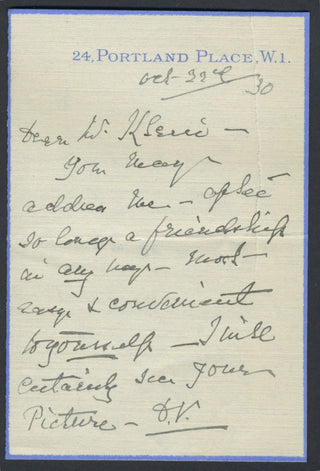 24, PORTLAND PLACE, W.1.
Oct 22d
30
Dear Mr Klein —
You may
address me — after
so long a friendship
in any way — most
easy & convenient
to yourself — I will
certainly see your
Picture — D.V.